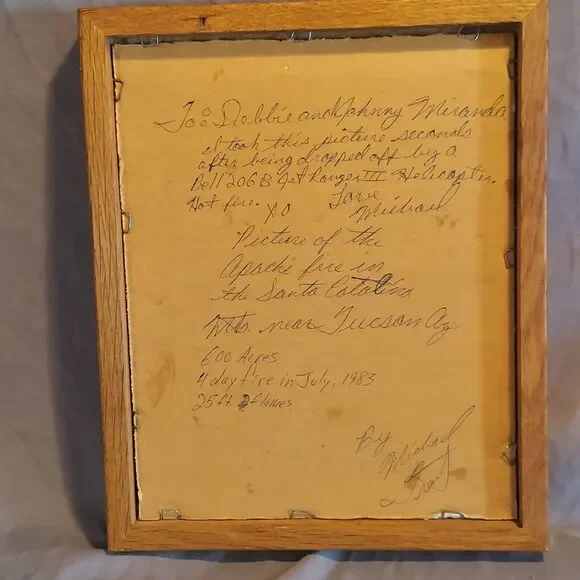 To: Debbie and Johnny Miranda
I took this picture seconds
after being dropped off by a
Bell 206B Jet Ranger III Helicopter.
Hot fire. Love
XO Michael
Picture of the
Apache fire in
the Santa Catalina
Mts. near Tucson Az.
600 Acres
4 day fire in July, 1983
25 ft flames
By
Michael